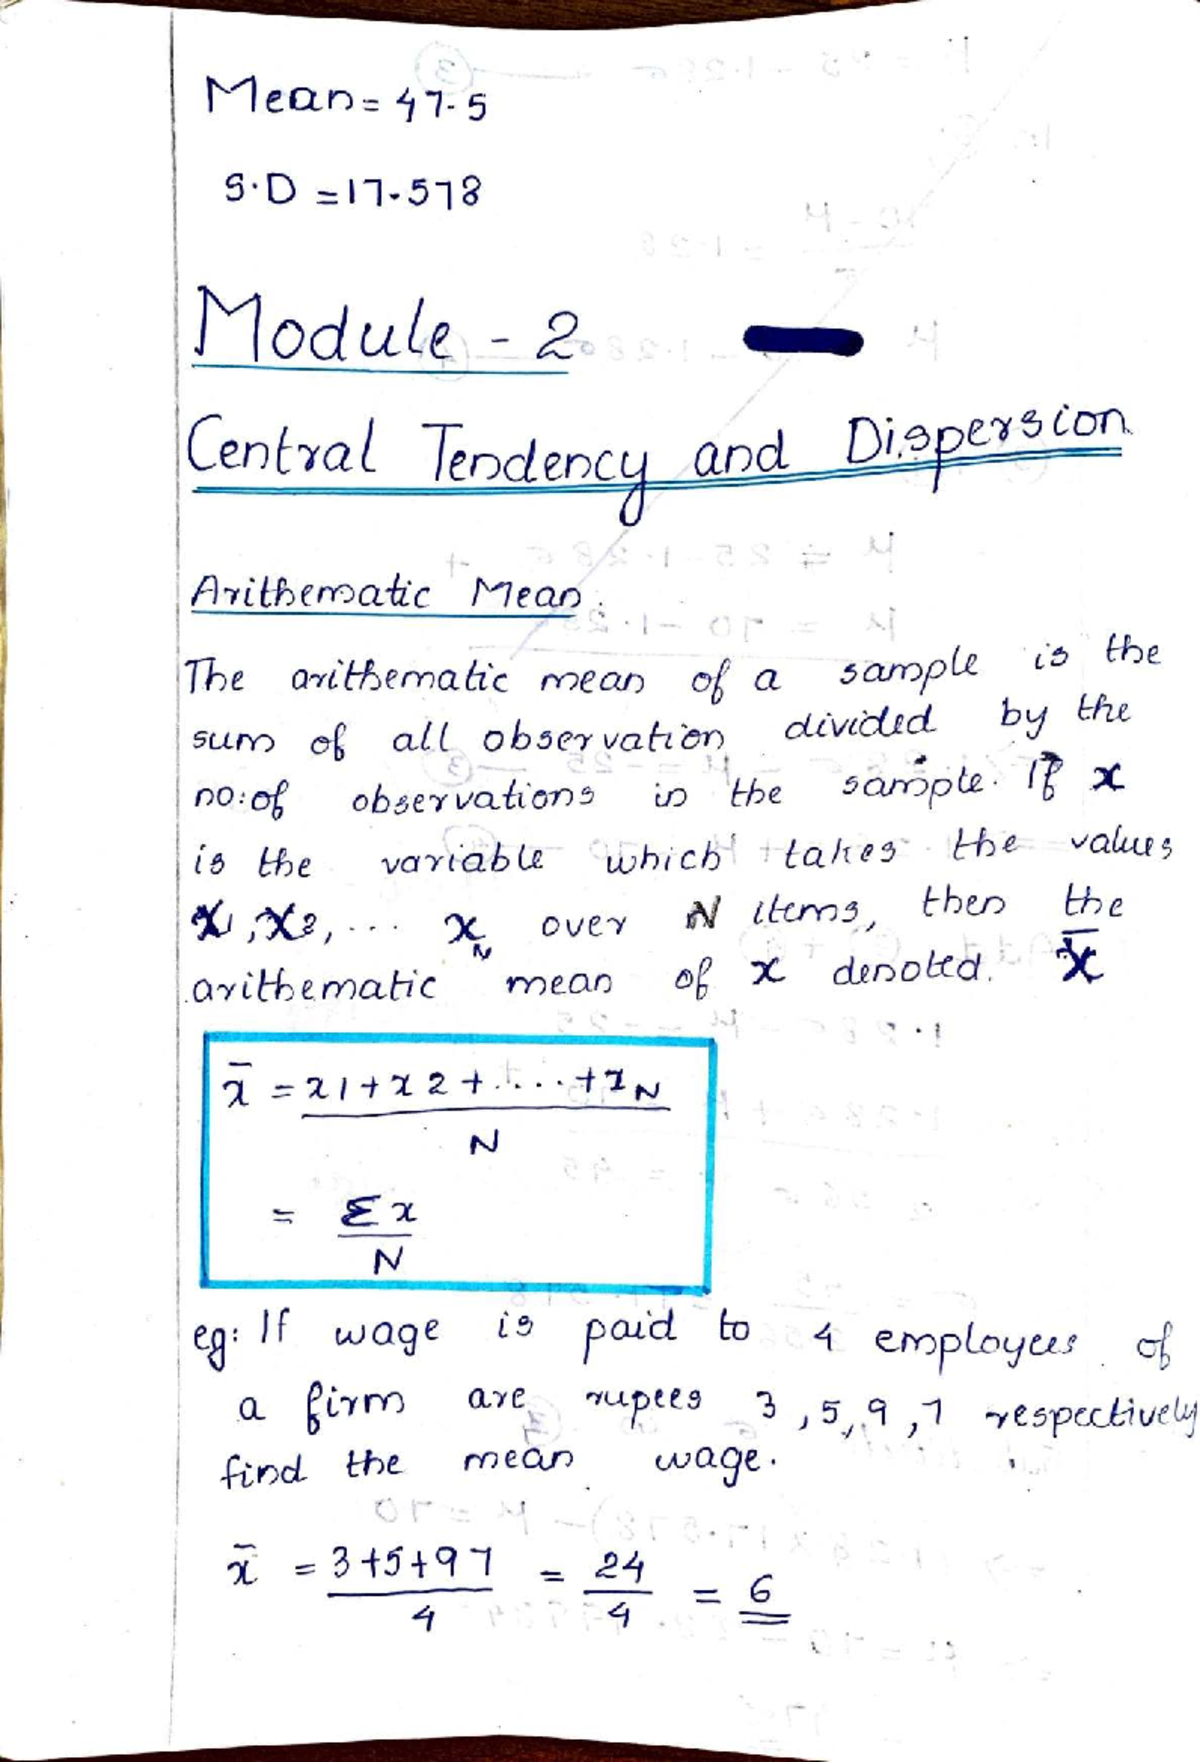 Mean = 47.5
S.D = 17.578
Module - 2
Central Tendency and Dispersion
Arithematic Mean.
The arithematic mean of a sample is the
sum of all observation divided by the
no: of observations in the sample. If x
is the variable which takes the values
x1, x2, ... xN over N items, then the
arithematic mean of x denoted. x̄
x̄ = x1 + x2 + ..... + xN
N
= Σx
N
eg: If wage is paid to 4 employees of
a firm are rupees 3, 5, 9, 7 respectively
find the mean wage.
x̄ = 3+5+97 = 24 = 6
4 4